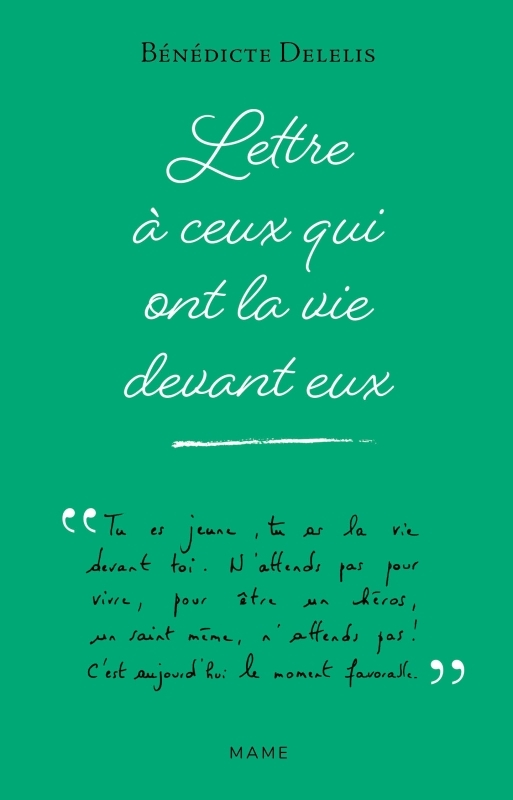 BÉNÉDICTE DELELIS
Lettre
à ceux qui
ont la vie
devant eux
“Tu es jeune, tu as la vie
devant toi. N'attends pas pour
vivre, pour être un héros,
un saint même, n'attends pas !
C'est aujourd'hui le moment favorable.”
MAME